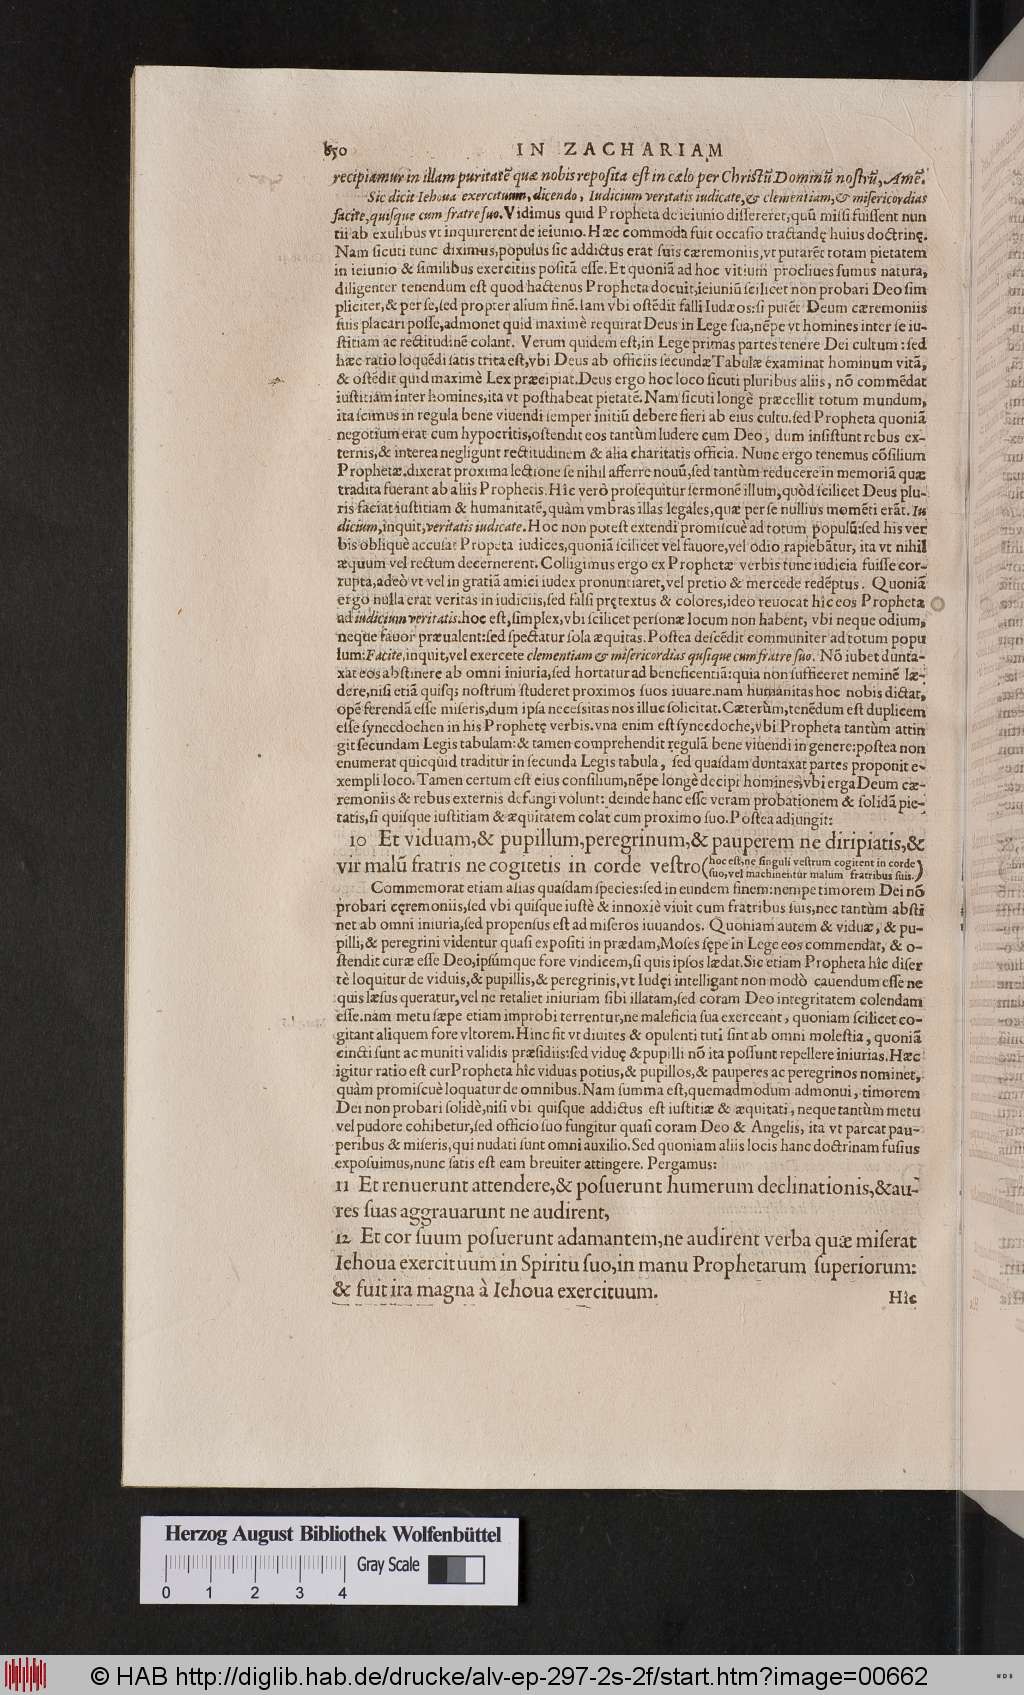 650 IN ZACHARIAM
recipiamur in illam puritatē quæ nobis reposita est in cælo per Christū Dominū nostrū, Amē.
Sic dicit Iehoua exercituum, dicendo, Iudicium veritatis iudicate, & clementiam, & misericordias
facite, quisque cum fratre suo. Vidimus quid Propheta de ieiunio dissereret, quū missi fuissent nun
tii ab exulibus vt inquirerent de ieiunio. Hæc commoda fuit occasio tractandę huius doctrinę.
Nam sicuti tunc diximus, populus sic addictus erat suis cæremoniis, vt putarēt totam pietatem
in ieiunio & similibus exercitiis positā esse. Et quoniā ad hoc vitium procliues sumus natura,
diligenter tenendum est quod hactenus Propheta docuit, ieiuniū scilicet non probari Deo sim
pliciter, & per se, sed propter alium finē. Iam vbi ostēdit falli Iudæos: si putēt Deum cæremoniis
suis placari posse, admonet quid maximè requirat Deus in Lege sua, nēpe vt homines inter se iu-
stitiam ac rectitudinē colant. Verum quidem est, in Lege primas partes tenere Dei cultum: sed
hæc ratio loquēdi satis trita est, vbi Deus ab officiis secundæ Tabulæ examinat hominum vitā,
& ostēdit quid maximè Lex præcipiat. Deus ergo hoc loco sicuti pluribus aliis, nō commēdat
iustitiam inter homines, ita vt posthabeat pietatē. Nam sicuti longè præcellit totum mundum,
ita scimus in regula bene viuendi semper initiū debere fieri ab eius cultu. sed Propheta quoniā
negotium erat cum hypocritis, ostendit eos tantùm ludere cum Deo, dum insistunt rebus ex-
ternis, & interea negligunt rectitudinem & alia charitatis officia. Nunc ergo tenemus cōsilium
Prophetæ. dixerat proxima lectione se nihil afferre nouū, sed tantùm reducere in memoriā quæ
tradita fuerant ab aliis Prophetis. Hîc verò prosequitur sermonē illum, quòd scilicet Deus plu-
ris faciat iustitiam & humanitatē, quàm vmbras illas legales, quæ per se nullius momēti erāt. Iu
dicium, inquit, veritatis iudicate. Hoc non potest extendi promiscuè ad totum populū: sed his ver
bis obliquè accusat Propeta iudices, quoniā scilicet vel fauore, vel odio rapiebātur, ita vt nihil
æquum vel rectum decernerent. Colligimus ergo ex Prophetæ verbis tunc iudicia fuisse cor-
rupta, adeò vt vel in gratiā amici iudex pronuntiaret, vel pretio & mercede redēptus. Quoniā
ergo nulla erat veritas in iudiciis, sed falsi prętextus & colores, ideo reuocat hîc eos Propheta
ad iudicium veritatis. hoc est, simplex, vbi scilicet personæ locum non habent, vbi neque odium,
neque fauor præualent: sed spectatur sola æquitas. Postea descēdit communiter ad totum popu
lum: Facite, inquit, vel exercete clementiam & misericordias qusique cum fratre suo. Nō iubet dunta-
xat eos abstinere ab omni iniuria, sed hortatur ad beneficentiā: quia non sufficeret neminē læ-
dere, nisi etiā quisq; nostrum studeret proximos suos iuuare. nam humanitas hoc nobis dictat,
opē ferendā esse miseris, dum ipsa necessitas nos illuc solicitat. Cæterùm, tenēdum est duplicem
esse synecdochen in his Prophetę verbis. vna enim est synecdoche, vbi Propheta tantùm attin
git secundam Legis tabulam: & tamen comprehendit regulā bene viuendi in genere: postea non
enumerat quicquid traditur in secunda Legis tabula, sed quasdam duntaxat partes proponit e-
xempli loco. Tamen certum est eius consilium, nēpe longè decipi homines, vbi erga Deum cæ-
remoniis & rebus externis defungi volunt: deinde hanc esse veram probationem & solidā pie-
tatis, si quisque iustitiam & æquitatem colat cum proximo suo. Postea adiungit:
10 Et viduam, & pupillum, peregrinum, & pauperem ne diripiatis, &
vir malū fratris ne cogitetis in corde vestro (hoc est, ne singuli vestrum cogitent in corde
suo, vel machinentur malum fratribus suis.)
Commemorat etiam alias quasdam species: sed in eundem finem: nempe timorem Dei nō
probari cęremoniis, sed vbi quisque iustè & innoxiè viuit cum fratribus suis, nec tantùm absti
net ab omni iniuria, sed propensus est ad miseros iuuandos. Quoniam autem & viduæ, & pu-
pilli, & peregrini videntur quasi expositi in prædam, Moses sępe in Lege eos commendat, & o-
stendit curæ esse Deo, ipsúmque fore vindicem, si quis ipsos lædat. Sic etiam Propheta hîc diser
tè loquitur de viduis, & pupillis, & peregrinis, vt Iudęi intelligant non modò cauendum esse ne
quis læsus queratur, vel ne retaliet iniuriam sibi illatam, sed coram Deo integritatem colendam
esse. nam metu sæpe etiam improbi terrentur, ne maleficia sua exerceant, quoniam scilicet co-
gitant aliquem fore vltorem. Hinc fit vt diuites & opulenti tuti sint ab omni molestia, quoniā
cincti sunt ac muniti validis præsidiis: sed viduę & pupilli nō ita possunt repellere iniurias. Hæc
igitur ratio est cur Propheta hîc viduas potius, & pupillos, & pauperes ac peregrinos nominet,
quàm promiscuè loquatur de omnibus. Nam summa est, quemadmodum admonui, timorem
Dei non probari solidè, nisi vbi quisque addictus est iustitiæ & æquitati, neque tantùm metu
vel pudore cohibetur, sed officio suo fungitur quasi coram Deo & Angelis, ita vt parcat pau-
peribus & miseris, qui nudati sunt omni auxilio. Sed quoniam aliis locis hanc doctrinam fusius
exposuimus, nunc satis est eam breuiter attingere. Pergamus:
11 Et renuerunt attendere, & posuerunt humerum declinationis, & au-
res suas aggrauarunt ne audirent,
12 Et cor suum posuerunt adamantem, ne audirent verba quæ miserat
Iehoua exercituum in Spiritu suo, in manu Prophetarum superiorum:
& fuit ira magna à Iehoua exercituum.
Hîc
Herzog August Bibliothek Wolfenbüttel
Gray Scale
0 1 2 3 4
© HAB http://diglib.hab.de/drucke/alv-ep-297-2s-2f/start.htm?image=00662